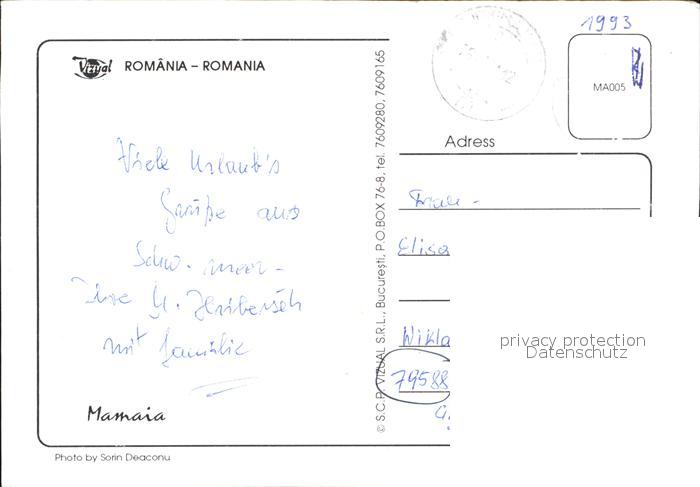 1993
Vizual ROMÂNIA – ROMANIA
MA005
Adress
Viele Urlaub's
Grüße aus
Schw. meer -
Ihre
mit Familie
Mamaia
Photo by Sorin Deaconu
© S.C.P. VIZUAL S.R.L., Bucureşti, P.O.BOX 76-8, tel. 7609280, 7609165
Frau -
Elisa
Wikla
79588
privacy protection
Datenschutz